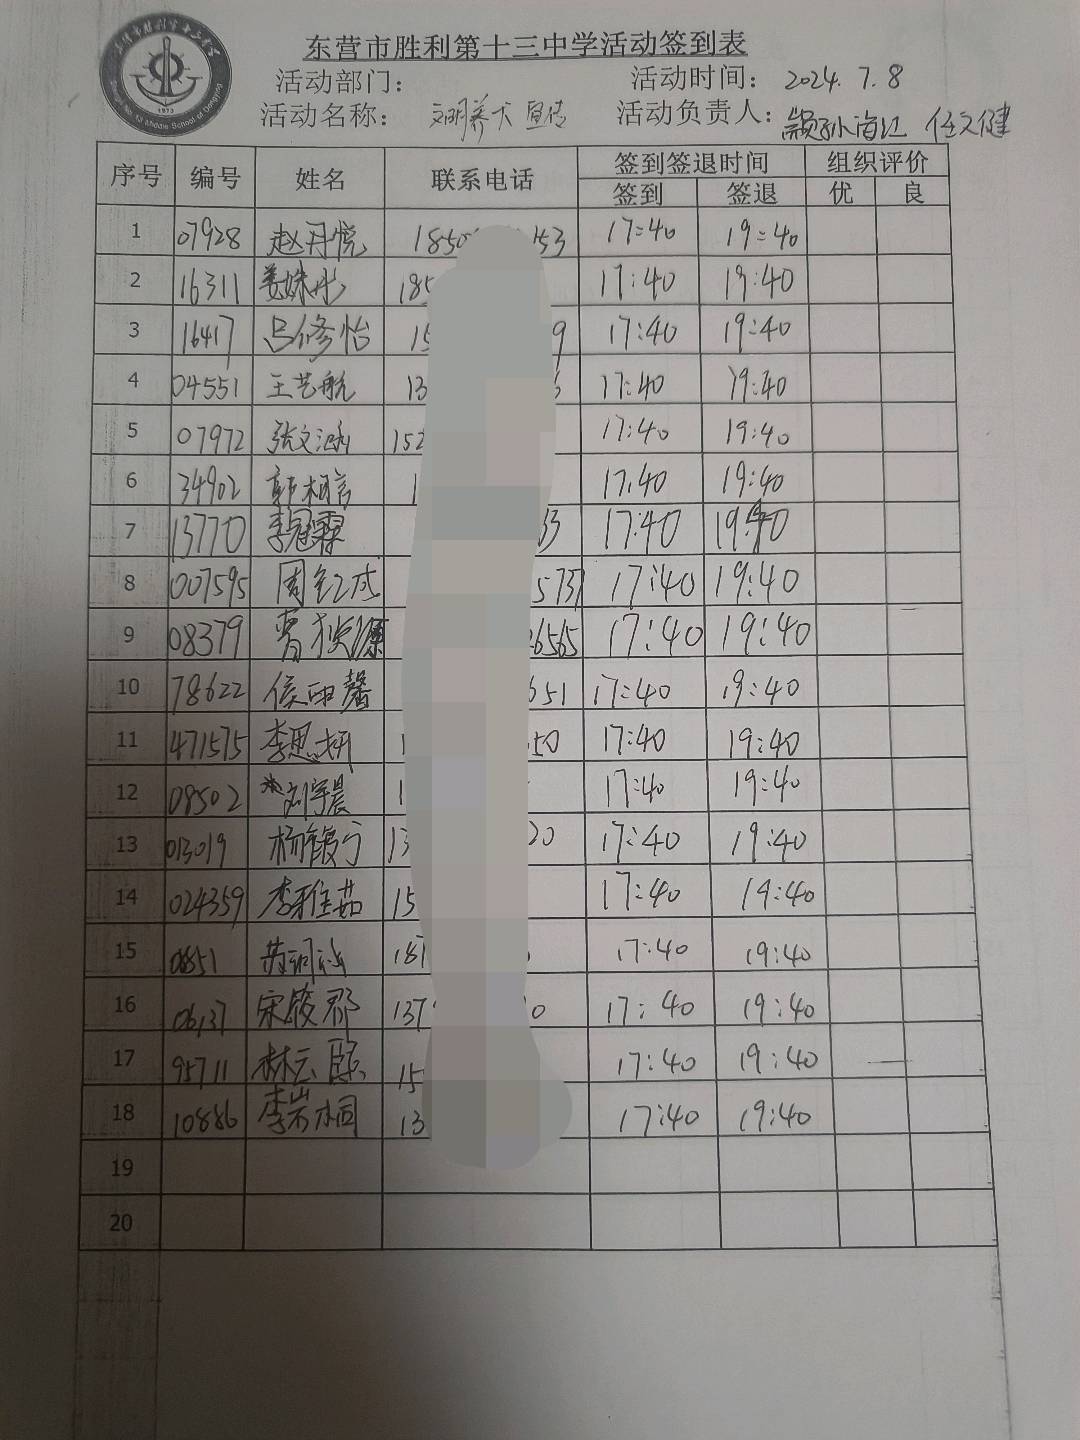 东营市胜利第十三中学活动签到表
活动部门： 活动时间： 2024. 7. 8
活动名称： 文明养犬宣传 活动负责人： 颛孙海江 任文健
序号 编号 姓名 联系电话 签到签退时间 组织评价
签到 签退 优 良
1 07928 赵丹悦 1850 153 17:40 19:40
2 16311 姜姝彤 185 17:40 19:40
3 16417 吕修怡 15 9 17:40 19:40
4 04551 王艺航 13 17:40 19:40
5 07972 张文涵 152 17:40 19:40
6 34902 郭相言 1 17:40 19:40
7 13770 李冠霖 33 17:40 19:40
8 007595 周 5737 17:40 19:40
9 08379 源 6565 17:40 19:40
10 78622 侯雨馨 651 17:40 19:40
11 471575 李思妍 1 50 17:40 19:40
12 08502 刘宇晨 1 17:40 19:40
13 013019 杨馥宁 13 20 17:40 19:40
14 024359 李雅茹 15 17:40 19:40
15 0851 黄 187 17:40 19:40
16 06137 宋筱郡 137 0 17:40 19:40
17 95711 林云 15 17:40 19:40
18 10886 李岩桐 13 17:40 19:40
19
20